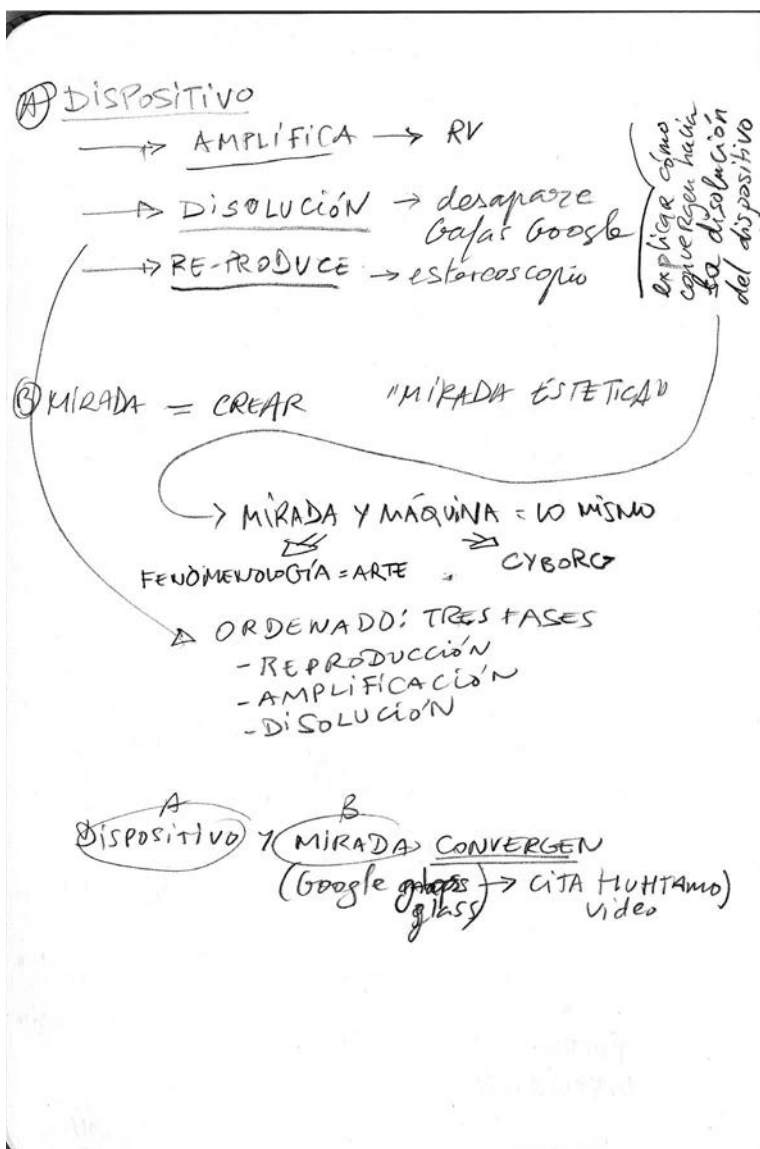 A DISPOSITIVO
AMPLIFICA → RV
DISOLUCIÓN → desapare
Gafas Google
RE-PRODUCE → estereoscopio
explicar cómo
convergen hacia
la disolución
del dispositivo
B MIRADA = CREAR "MIRADA ESTETICA"
→ MIRADA Y MÁQUINA = LO MISMO
FENOMENOLOGÍA = ARTE . CYBORG
ORDENADO: TRES FASES
- REPRODUCCIÓN
- AMPLIFICACIÓN
- DISOLUCIÓN
A B
DISPOSITIVO Y MIRADA CONVERGEN
(Google → CITA HUHTAMO)
glass) video